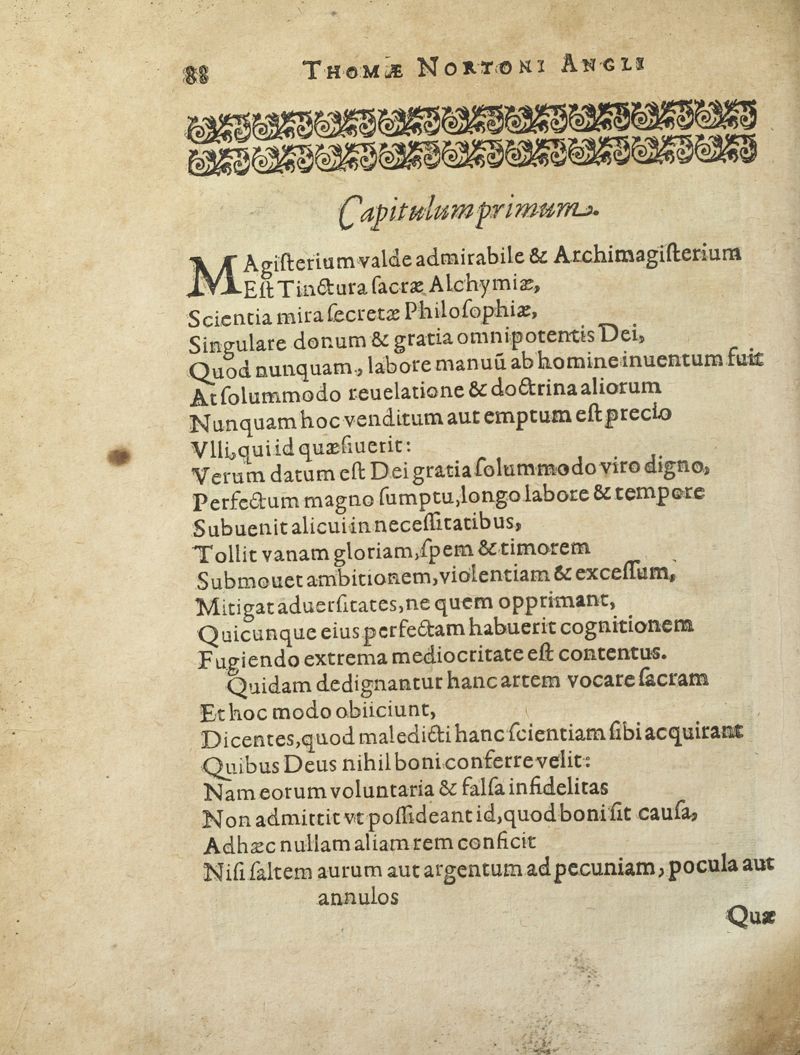 88 THOMÆ NORTONI ANGLI
Capitulum primum.
MAgiſterium valde admirabile & Archimagiſterium
Eſt Tinctura ſacræ Alchymiæ,
Scientia mira ſecretæ Philoſophiæ,
Singulare donum & gratia omnipotentis Dei,
Quod nunquam, labore manuũ ab homine inuentum fuit
At ſolummodo reuelatione & doctrina aliorum
Nunquam hoc venditum aut emptum eſt precio
Vlli, qui id quæſiuerit:
Verum datum eſt Dei gratia ſolummodo viro digno,
Perfectum magno ſumptu, longo labore & tempore
Subuenit alicui in neceſſitatibus,
Tollit vanam gloriam, ſpem & timorem
Submouet ambitionem, violentiam & exceſſum,
Mitigat aduerſitates, ne quem opprimant,
Quicunque eius perfectam habuerit cognitionem
Fugiendo extrema mediocritate eſt contentus.
Quidam dedignantur hanc artem vocare ſacram
Et hoc modo obiiciunt,
Dicentes, quod maledicti hanc ſcientiam ſibi acquirant
Quibus Deus nihil boni conferre velit:
Nam eorum voluntaria & falſa infidelitas
Non admittit vt poſſideant id, quod boni ſit cauſa,
Adhæc nullam aliam rem conficit
Niſi ſaltem aurum aut argentum ad pecuniam, pocula aut
annulos
Quæ